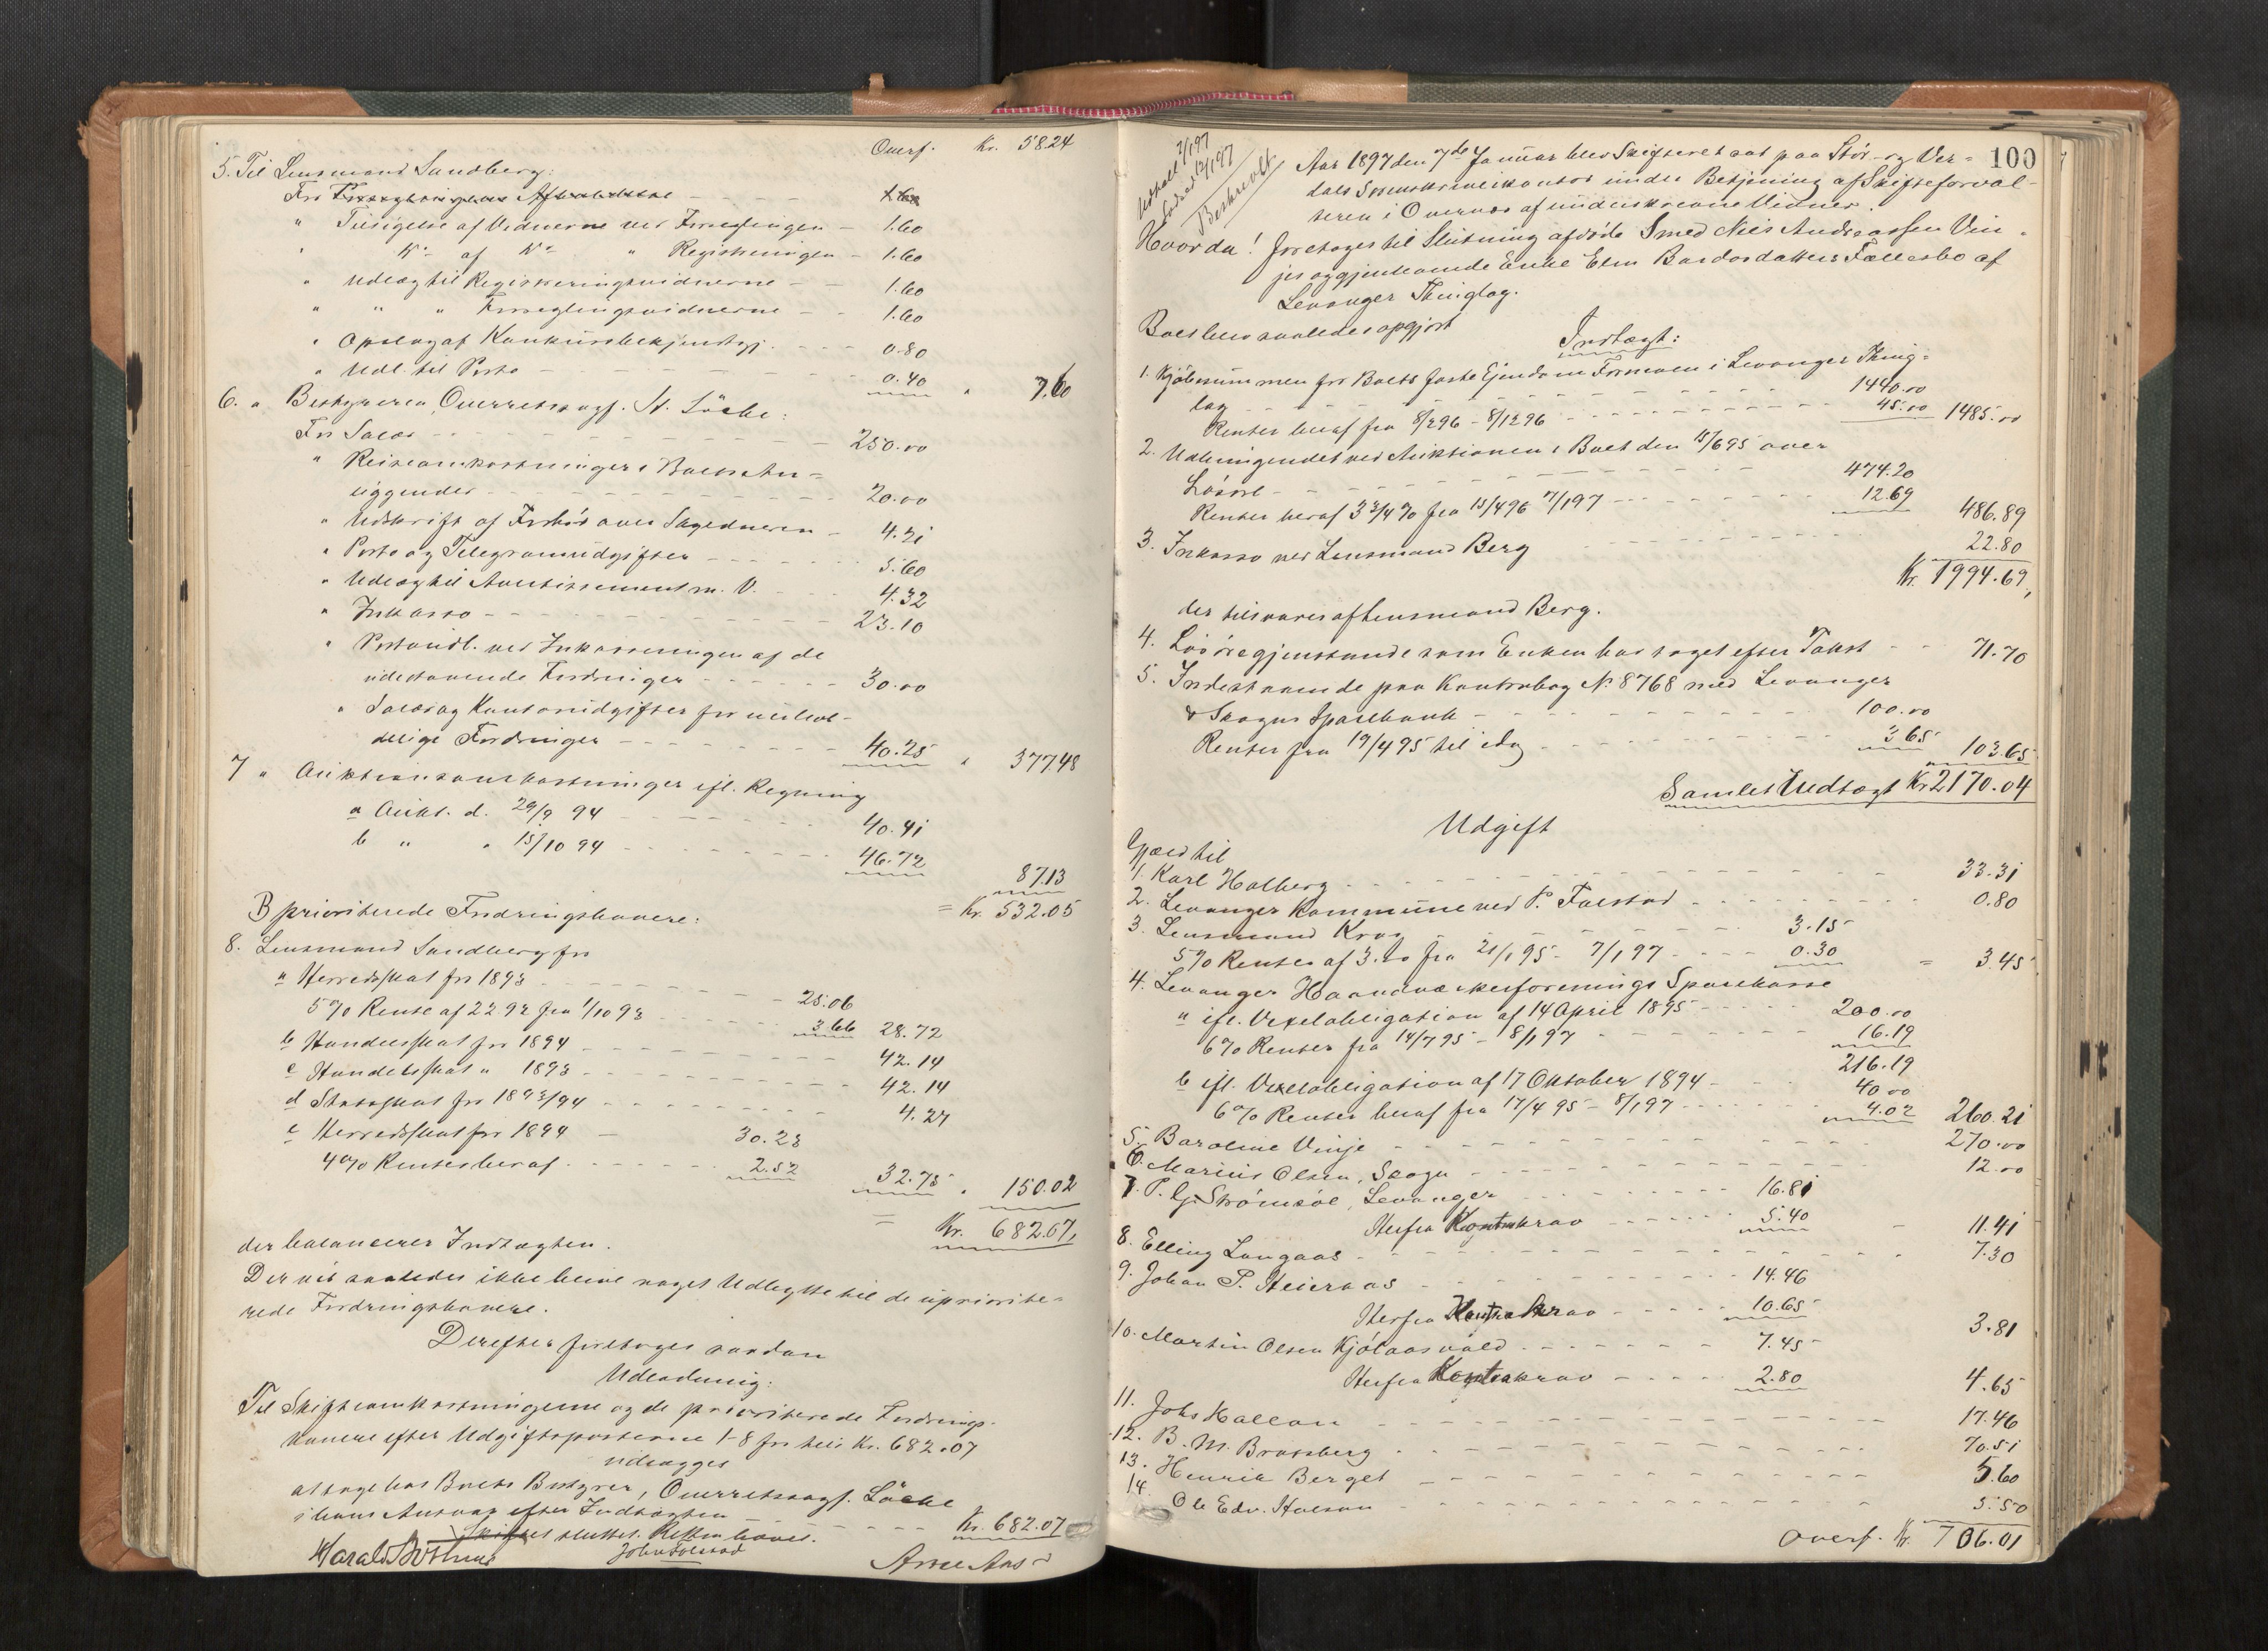 Overf. Kr. 58.24
5. Til Lensmand Sandberg:
For Forseglingens Afholdelse - - - - 1.60
" Tilsigelse af Vidnerne ved Forseglingen - 1.60
" Do af Do " Registreringen - 1.60
" Udlæg til Registreringsvidnerne - - 1.60
" " " Forseglingsvidnerne - - 1.60
" Opslag af Konkursbekjendtgj. - - - 0.80
" Udl. til Porto - - - - 0.40 " 7.60
6. " Bestyreren, Overretssagf. St. Löche:
For Salær - - - - 250.00
" Reiseomkostninger i Boets An=
liggender - - - - 20.00
" Udskrift af Forhör over Skyldneren - 4.21
" Porto og Telegramudgifter - - - - 5.60
" Udlæg til Avertissement m. V. - - - 4.32
" Inkasso - - - - 23.10
" Postandl. ved Inkasseringen af de
udestaaende Fordringer - - - - 30.00
" Salær og Kontorudgifter for uerhol-
delige Fordringer - - - - 40.25 " 377.48
7 " Auktionsomkostninger ifl. Regning
a Aukt. d. 29/9 94 - - - - 40.41
b " " 15/10 94 - - - - 46.72
87.13
= Kr. 532.05
B prioriterede Fordringshavere:
8. Lensmand Sandberg for
a Herredsskat for 1893 - - - - 25.06
5% Rente af 22.92 fra 1/10 93 - - - 3.66 28.72
b Handelsskat for 1894 - - - - 42.14
c Handelsskat " 1893 - - - - 42.14
d Statsskat for 1893/94 - - - - 4.27
e Herredsskat for 1894 - 30.23
4% Renter heraf - - - - 2.52 32.75 " 150.02
= Kr. 682.07,
der balancerer Indtægten.
Der vil saaledes ikke blive noget Udlagt til de upriorite=
rede Fordringshavere.
Derefter foretages saadan
Udlodning:
Til Skifteomkostningerne og de prioriterede Fordrings-
havere efter Udgiftsposterne 1-8 for tils Kr. 682.07
udlægges
at tage hos Boets Bestyrer, Overretssagf. Löche
i hans Ansvar efter Indtægten - - - - Kr. 682.07
Skiftet sluttet. Retten hævet.
Harald Bothner John Folstad Arne Aas
100
Udtall 7/1 97
Lodset 12/1 97
Beskrevet
Aar 1897 den 7de Januar blev Skifteret sat paa Stör- og Ver=
dals Sorenskriverkontor under Betjening af Skifteforval-
teren i Overvær af underskrevne Vidner.
Hvorda! foretoges til Slutning afdöde Smed Nils Andreassen Vin-
jes og gjenlevende Enke Elen Bardosdatters Fællesbo af
Levanger Thinglag.
Boet blev saaledes opgjort
Indtægt:
1. Kjöbesummen for Boets faste Ejendom Formoen i Levanger Thing=
lag - - - - 1440.00
Renter heraf fra 8/2 96 - 8/12 96 - - - - 45.00 1485.00
2. Udbringendet ved Auktionen i Boet den 15/6 95 over
Lösöre - - - - 474.20
Renter heraf 3 3/4 % fra 15/4 96 7/1 97 - - - - 12.69 486.89
3. Inkasso ved Lensmand Berg - - - - 22.80
Kr. 1994.69,
der tilsvares af Lensmand Berg.
4. Lösöregjenstande som Enken har taget efter Takst - - 71.70
5. Indestaaende paa Kontrabog No 8768 med Levanger
& Skogns Sparebank - - - - 100.00
Renter fra 19/4 95 til idag - - - - 3.65 103.65
Samlet Indtægt Kr 2170.04
Udgift
Gjæld til
1. Karl Halberg - - - - 33.31
2. Levanger Kommune ved P. Falstad - - - - 0.80
3. Lensmand Krog - - - - 3.15
5% Renter af 3.00 fra 21/1 95 - 7/1 97 - - - - 0.30 = 3.45
4. Levanger Haandværkerforenings Sparekasse
a ifl. Vexelobligation af 14 April 1895 - - - 200.00
6% Renter fra 14/7 95 - 8/1 97 - - - - 16.19
216.19
b ifl. Vexelobligation af 17 Oktober 1894 - 40.00
6% Renter heraf fra 17/4 95 - 8/1 97 - - - - 4.02 260.21
5. Baroline Vinje - - - - 270.00
6. Marius Olsen, Skogn - - - - 12.00
7. P. G. Strömsöe, Levanger - - - - 16.81
Herfra Kontrakrav - - - - 5.40 - 11.41
8. Elling Langaas - - - - 7.30
9. Johan P. Heieraas - - - - 14.46
Herfra Kontrakrav - - - - 10.65 3.81
10. Martin Olsen Kjölaasvald - - - - 7.45
Herfra Kontrakrav - - - - 2.80 4.65
11. Johs Hallan - - - - 17.46
12. B. M. Brassberg - - - - 70.51
13. Henrik Berget - - - - 5.60
14. Ole Edv. Halsan - - - - 5.50
Overf. Kr. 706.01